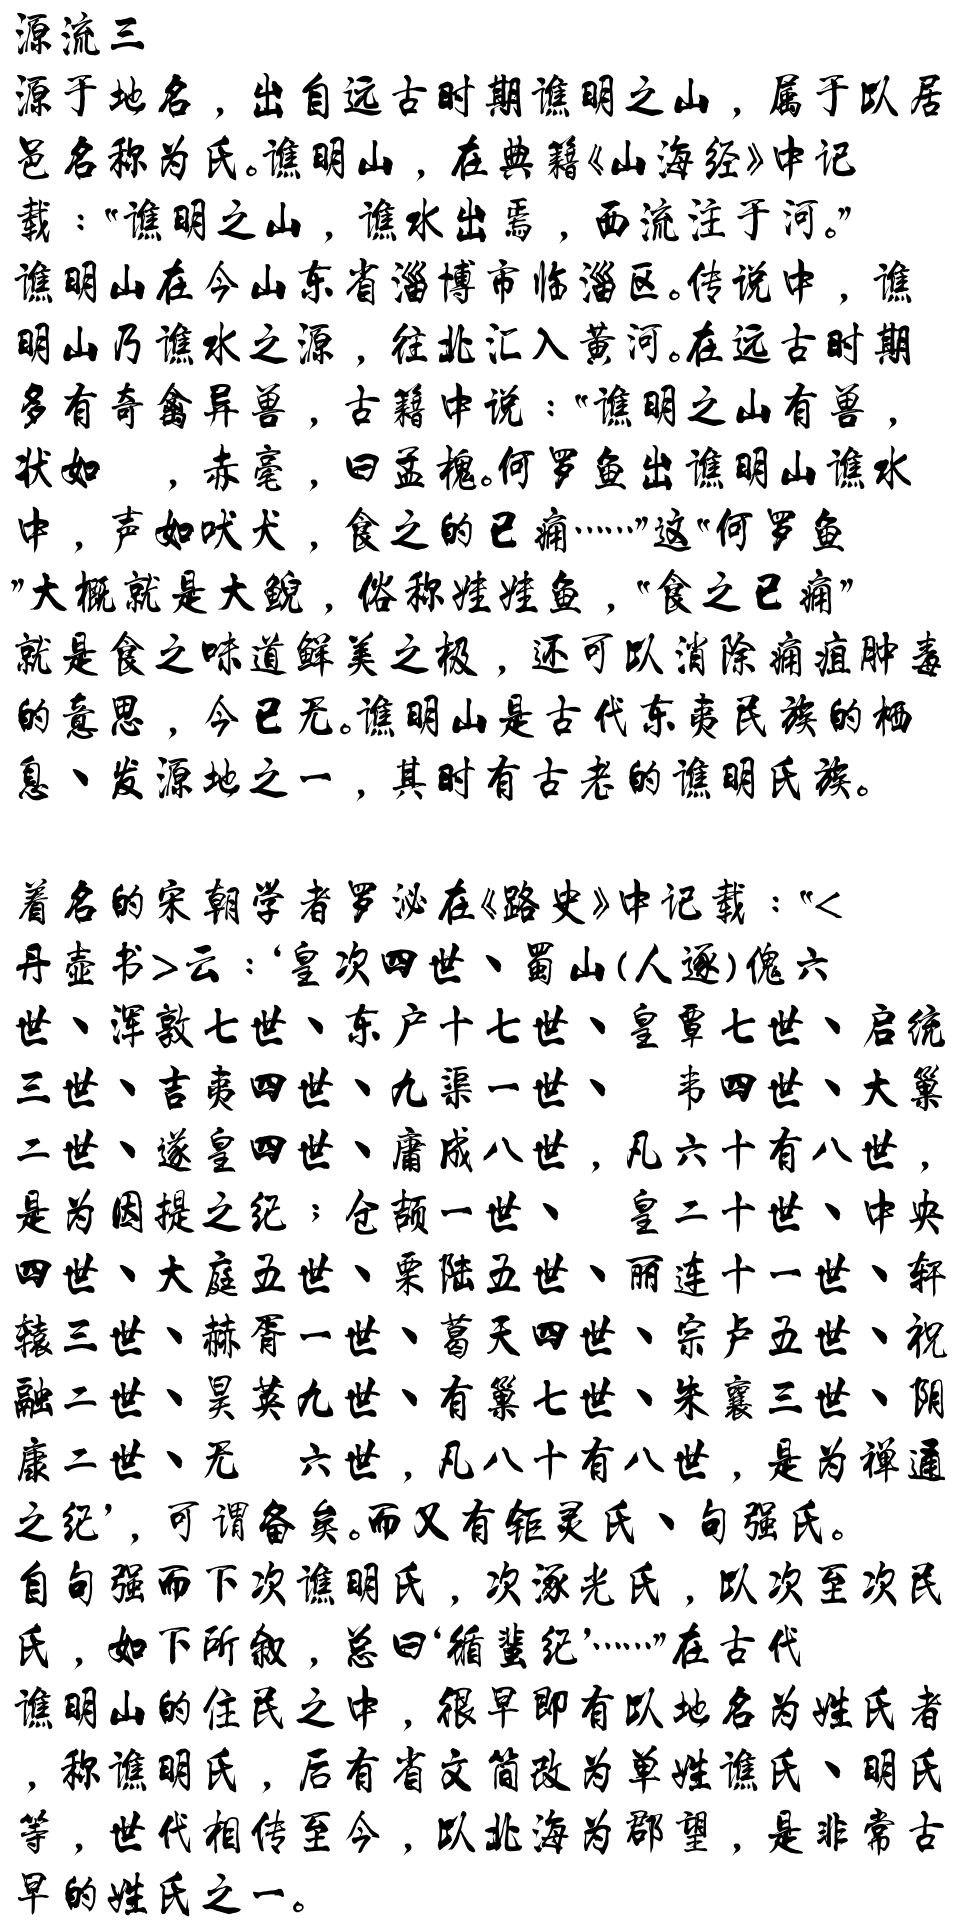 源流三
源于地名，出自远古时期谯明之山，属于以居
邑名称为氏。谯明山，在典籍《山海经》中记
载：“谯明之山，谯水出焉，西流注于河。”
谯明山在今山东省淄博市临淄区。传说中，谯
明山乃谯水之源，往北汇入黄河。在远古时期
多有奇禽异兽，古籍中说：“谯明之山有兽，
状如　，赤毫，曰孟槐。何罗鱼出谯明山谯水
中，声如吠犬，食之的已痈……”这“何罗鱼
”大概就是大鲵，俗称娃娃鱼，“食之已痈”
就是食之味道鲜美之极，还可以消除痈疽肿毒
的意思，今已无。谯明山是古代东夷民族的栖
息、发源地之一，其时有古老的谯明氏族。
着名的宋朝学者罗泌在《路史》中记载：“<
丹壶书>云：‘皇次四世、蜀山(人逐)傀六
世、浑敦七世、东户十七世、皇覃七世、启统
三世、吉夷四世、九渠一世、　韦四世、大巢
二世、遂皇四世、庸成八世，凡六十有八世，
是为因提之纪；仓颉一世、　皇二十世、中央
四世、大庭五世、栗陆五世、丽连十一世、轩
辕三世、赫胥一世、葛天四世、宗卢五世、祝
融二世、昊英九世、有巢七世、朱襄三世、阴
康二世、无　六世，凡八十有八世，是为禅通
之纪’，可谓备矣。而又有钜灵氏、句强氏。
自句强而下次谯明氏，次涿光氏，以次至次民
氏，如下所叙，总曰‘循蜚纪’……”在古代
谯明山的住民之中，很早即有以地名为姓氏者
，称谯明氏，后有省文简改为单姓谯氏、明氏
等，世代相传至今，以北海为郡望，是非常古
早的姓氏之一。